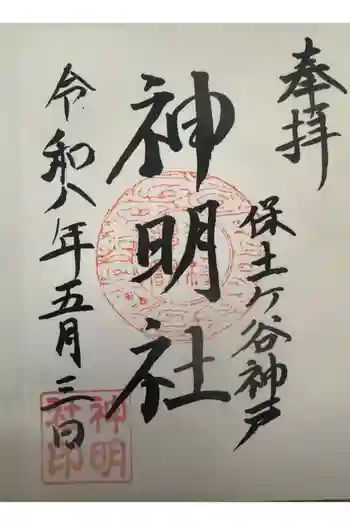 奉拝
保土ケ谷神戸
神明社
令和八年五月三日
神明
社印